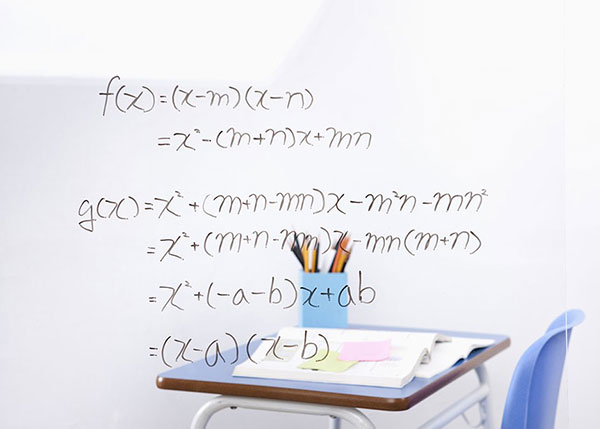 f(x)=(x-m)(x-n)
=x²-(m+n)x+mn
g(x)=x²+(m+n-mn)x-m²n-mn²
=x²+(m+n-mn)x-mn(m+n)
=x²+(-a-b)x+ab
=(x-a)(x-b)